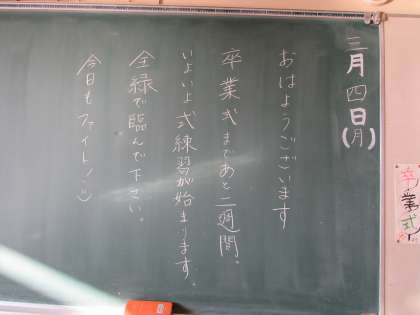 三月四日(月)
おはようございます
卒業式まであと二週間。
いよいよ式練習が始まります。
全緑で臨んで下さい。
今日もファイト！
卒業式